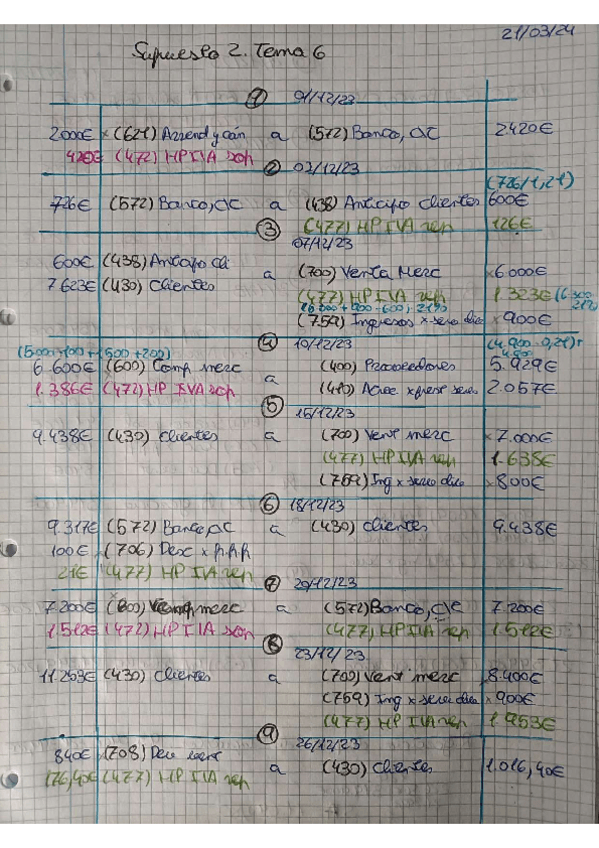 21/03/24
Supuesto 2. Tema 6
① 01/12/23
2000€ (621) Arrend y can a (572) Banco, c/c 2.420€
420€ (472) HP IVA sop
② 02/12/23
(726/1,21)
726€ (572) Banco, c/c a (438) Anticipo clientes 600€
(477) HP IVA rep 126€
③ 07/12/23
600€ (438) Anticipo cli
7.623€ (430) Clientes a (700) Venta Merc 6.000€
(477) HP IVA rep 1.323€ (6.300 · 21%)
(759) Ingresos x serv div 900€
④ 10/12/23
(5000-100+1500+200) (4.900 · 0,21)+ 4.900
6.600€ (600) Comp merc a (400) Proveedores 5.929€
1.386€ (472) HP IVA sop (410) Acree. x prest serv 2.057€
⑤ 15/12/23
9.438€ (430) clientes a (700) Vent merc 7.000€
(477) HP IVA rep 1.638€
(759) Ing x serv div 800€
⑥ 18/12/23
9.317€ (572) Banco, c/c a (430) clientes 9.438€
100€ (706) Desc x p.p.p
21€ (477) HP IVA rep
⑦ 20/12/23
7.200€ (600) merc a (572) Banco, c/c 7.200€
1.512€ (472) HP IVA sop (477) HP IVA rep 1.512€
⑧ 23/12/23
11.253€ (430) clientes a (700) Vent merc 8.400€
(759) Ing x serv div 900€
(477) HP IVA rep 1.953€
⑨ 26/12/23
840€ (708) Dev vent a (430) clientes 1.016,40€
176,40€ (477) HP IVA rep